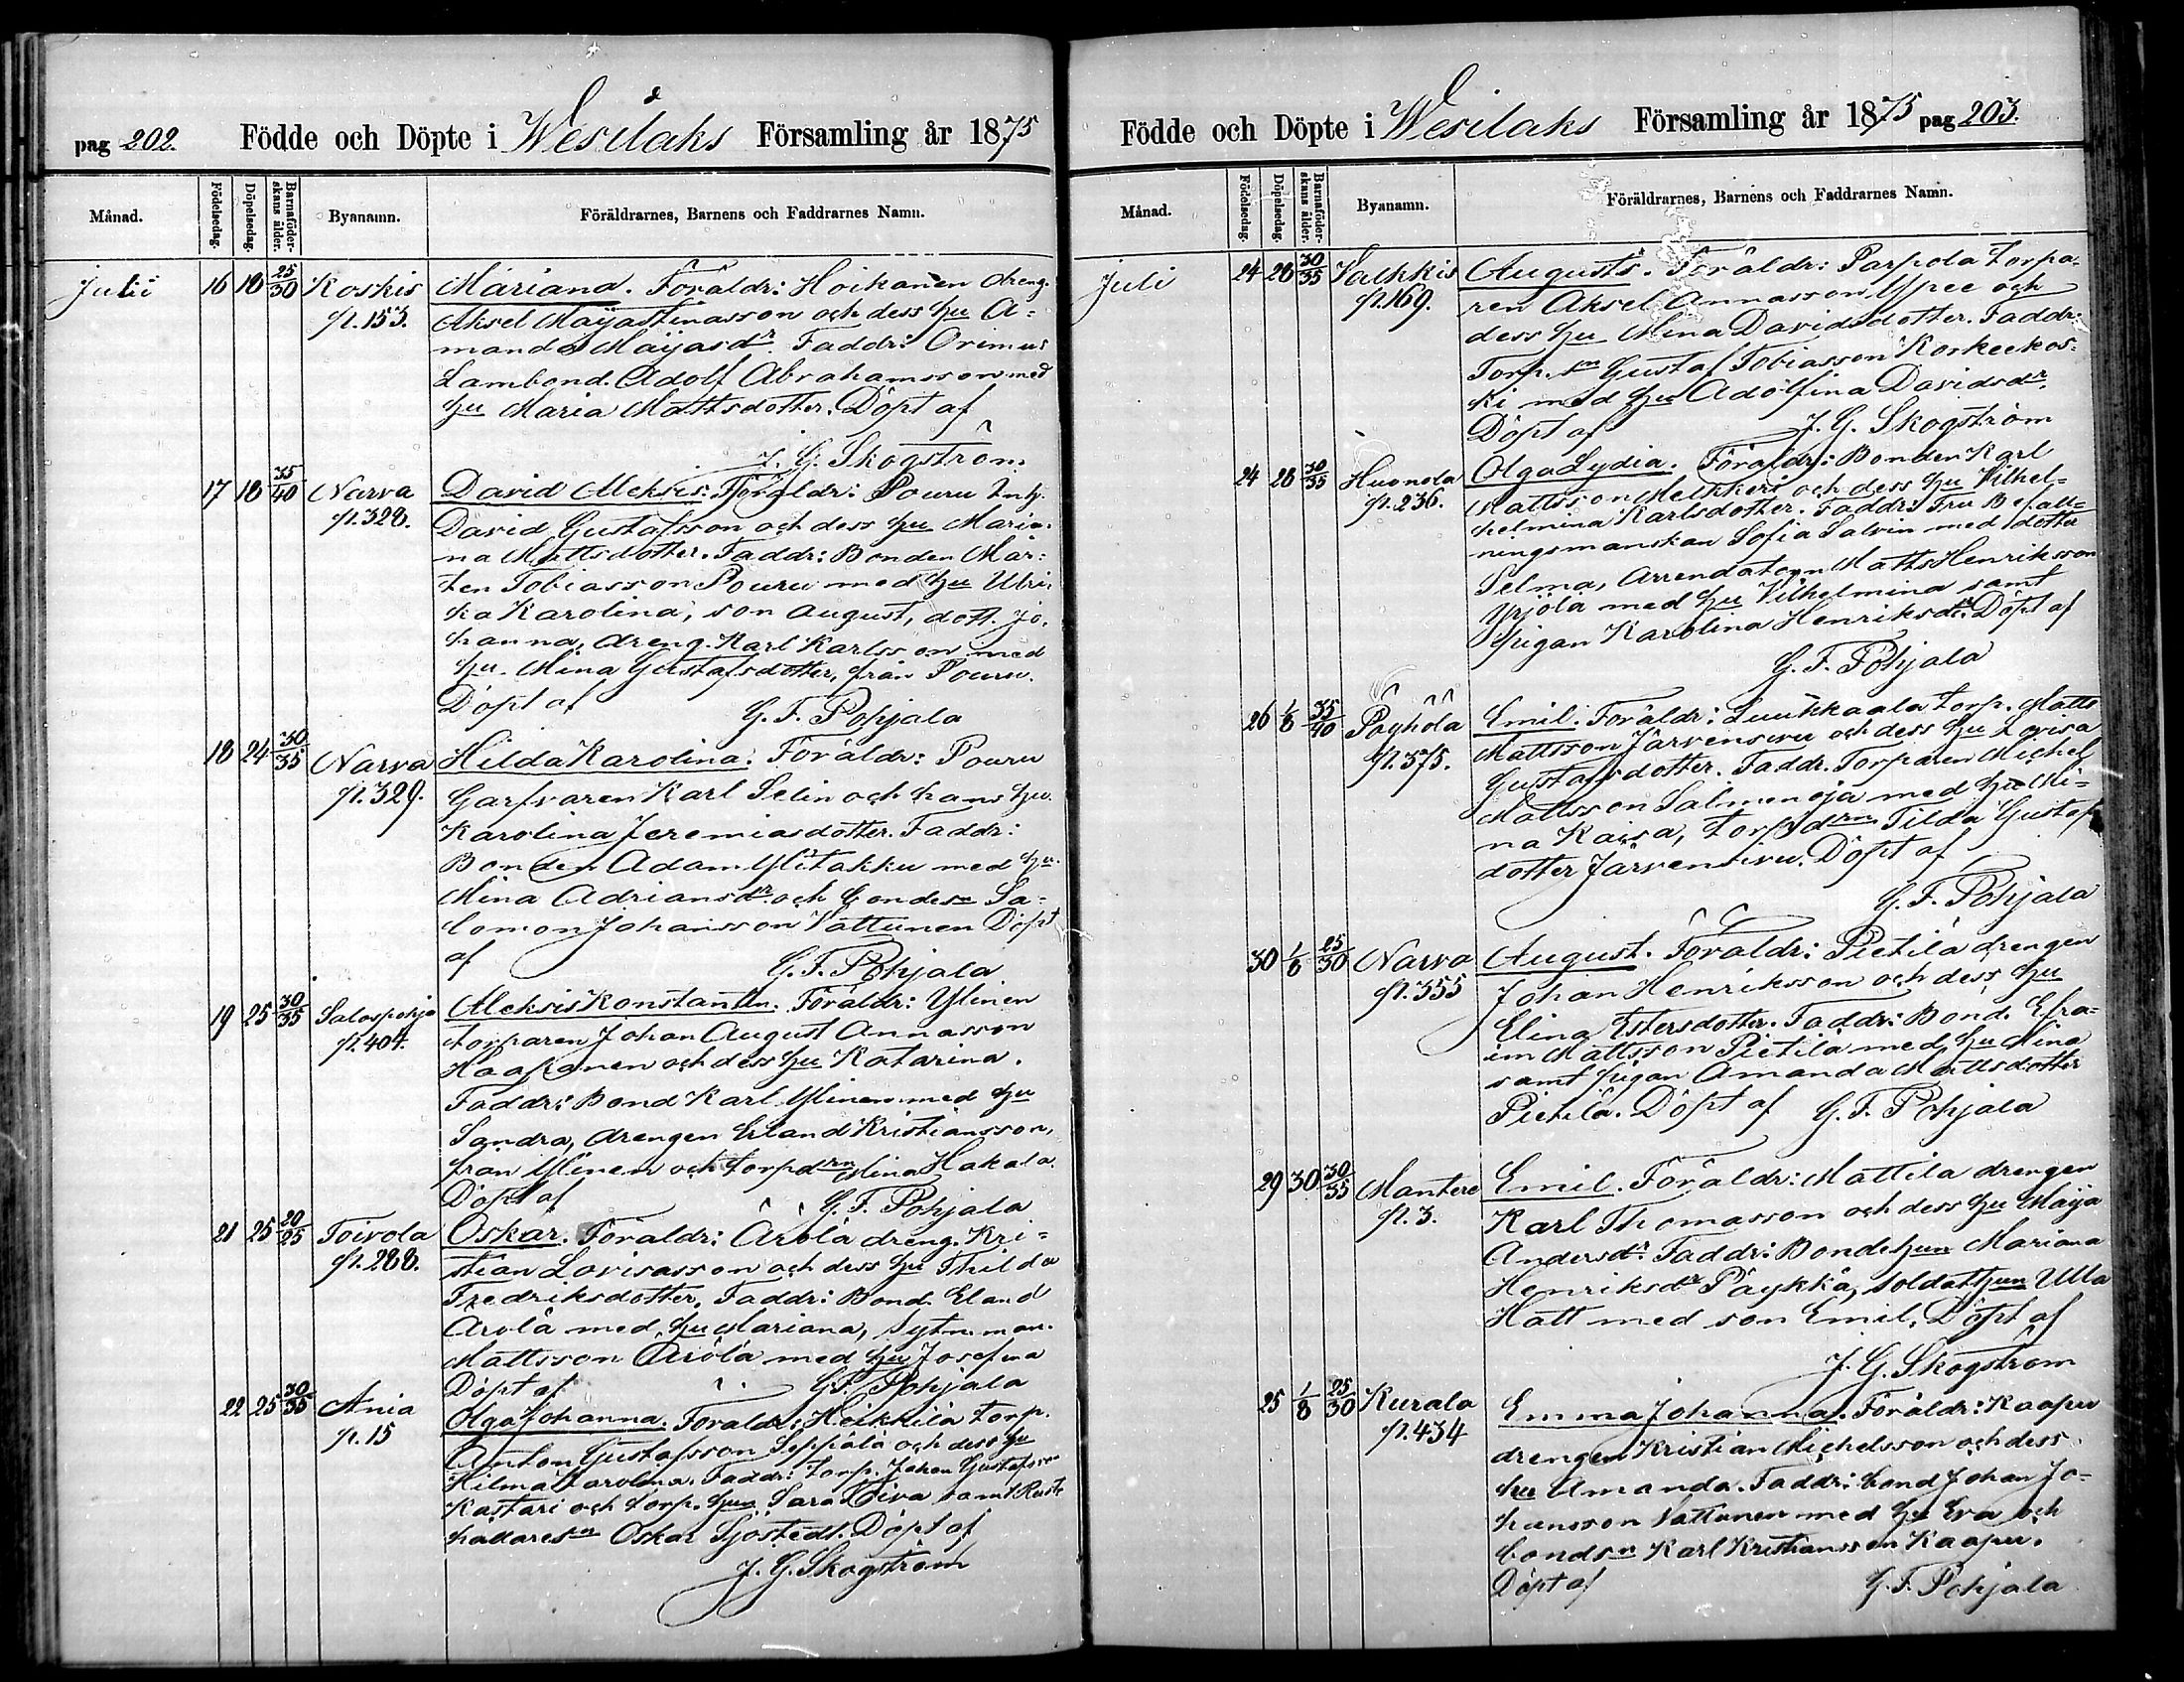 pag 202. Födde och Döpte i Wesilaks Församling år 1875
Månad. Födelsedag. Döpelsedag. Barnaföderskans ålder. Byanamn. Föräldrarnes, Barnens och Faddrarnes Namn.
Juli 16 18 25/30 Koskis Mariana. Föräldr: Hoikanen dreng.
p. 153. Aksel Majastinasson och dess hu A-
manda Majasdr. Faddr: Orimus
Lambond. Adolf Abrahamsson med
hu Maria Mattsdotter. Döpt af
J. G. Skogström.
17 18 35/40 Narva David Aleksis. Föräldr: Pouru Inh.
p. 328. David Gustafsson och dess hu Maria-
na Mattsdotter. Faddr: Bonden Mår-
ten Tobiasson Pouru med hu Ulri-
ka Karolina, son August, dott. Jo-
hanna, dreng. Karl Karlsson med
hu. Mina Gustafsdotter, från Pouru.
Döpt af G. F. Pohjala
18 24 30/35 Narva Hilda Karolina. Föräldr: Pouru
p. 329. Garfvaren Karl Selin och hans hu.
Karolina Jeremiasdotter. Faddr:
Bonden Adam Ylitakku med hu.
Mina Adriansdr och bondesn Sa-
lomon Johansson Vattunen Döpt
af G. F. Pohjala
19 25 30/35 Salospohja Aleksis Konstantin. Föräldr: Ylinen
p. 404. torparen Johan August Annasson
Haapanen och dess hu Katarina.
Faddr: Bond Karl Ylinen med hu
Sandra, drengen Erland Kristiansson,
från Ylinen och torpdrn Mina Hakala.
Döpt af G. F. Pohjala
21 25 20/25 Toivola Oskar. Föräldr: Ärölä dreng. Kri-
p. 288. stian Lovisasson och dess hu Thilda
Fredriksdotter. Faddr: Bond. Eland
Ärölä med hu Mariana, Sytn. man.
Mattsson Ärölä med hu Josefina
Döpt af G. F. Pohjala
22 25 30/35 Ania Olga Johanna. Föräldr: Heikkilä torp.
p. 15 Anton Gustafsson Seppälä och dess hu
Hilma Karolina. Faddr: Torp. Johan Gustafsson
Kastari och torp. hun Sara samt Rust-
hållaresn Oskar Sjöstedt. Döpt af
J. G. Skogström
Födde och Döpte i Wesilaks Församling år 1875 pag 203.
Månad. Födelsedag. Döpelsedag. Barnaföderskans ålder. Byanamn. Föräldrarnes, Barnens och Faddrarnes Namn.
Juli 24 28 30/35 Valkkis August. Föräldr: Parpola torpa-
p. 169. ren Aksel Annasson och
dess hu Mina Davidsdotter. Faddr.
Torp. sn Gustaf Tobiasson Korkeekos-
ki med hu Adolfina Davidsdr.
Döpt af J. G. Skogström
24 28 30/35 Huonola Olga Lydia. Föräldr: Bonden Karl
p. 236. Mattsson Melkkeri och dess hu Vilhel-
helmina Karlsdotter. Faddr: Fru Befall-
ningsmanskan Sofia Salvin med dotter
Selma, Arrendatorn Matts Henriksson
Yrjölä med hu Vilhelmina samt
pigan Karolina Henriksdr. Döpt af
G. F. Pohjala
26 1/8 35/40 Päyhölä Emil. Föräldr: Luukkaala torp. Matts
p. 375. Mattsson Järvensivu och dess hu Lovisa
Gustafsdotter. Faddr. Torparen Michel
Mattsson Salmenoja med hu Mi-
na Kaisa, torpdrn Tilda Gustafs
dotter Järvensivu. Döpt af
G. F. Pohjala
30 1/8 25/30 Narva August. Föräldr: Pietilä drengen
p. 355 Johan Henriksson och dess hu
Elina Estersdotter. Faddr: Bond. Efra-
im Mattsson Pietilä med hu Mina
samt pigan Amanda Mattsdotter
Pietilä. Döpt af G. F. Pohjala
29 30 30/35 Mantere Emil. Föräldr: Mattila drengen
p. 3. Karl Thomasson och dess hu Maija
Andersdr. Faddr: Bondehun Mariana
Henriksdr Päykkä, soldathun Ulla
Hatt med son Emil. Döpt af
J. G. Skogström
25 1/8 25/30 Kurala Emma Johanna. Föräldr: Kaapu
p. 434 drengen Kristian Michelsson och dess
hu Amanda. Faddr: bond Johan Jo-
hansson Vattunen med hu Eva och
bondsn Karl Kristiansson Kaapu.
Döpt af G. F. Pohjala